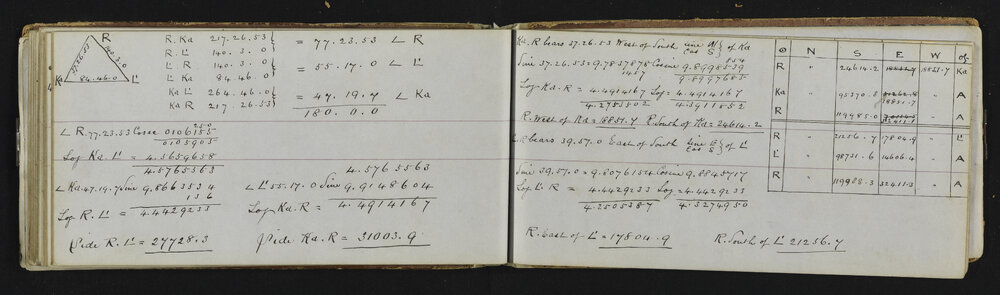 R
37.26.53
140.3.0
84.46.0
Ka
L'
R. Ka 217.26.53 } = 77.23.53 ∠ R
R. L' 140. 3. 0
L' R 140. 3. 0 } = 55.17.0 ∠ L'
L' Ka 84.46.0
Ka L' 264.46.0 } = 47.19.7 ∠ Ka
Ka R 217.26.53
180.0.0
∠ R. 77.23.53 Cosec 0106155
250
0105905
Log Ka. L' = 4.5659658
4.5765563
4.5765563
∠ Ka 47.19.7 Sine 9.8663534
136
∠ L' 55.17.0 Sine 9.9148604
Log R. L' = 4.4429233
Log Ka. R = 4.4914167
Side R. L' = 27728.3
Side Ka. R = 31003.9
Ka. R bears 37.26.53 West of South Sine W } of Ka
Cos S
Sine 37.26.53 = 9.7837878 Cosine 9.8998539
1457
854
9.8997685
Log Ka. R = 4.4914167 Log = 4.4914167
4.2755502 4.3911852
R. West of Ka = 18851.7 R. South of Ka = 24614.2
L'. R bears 39.57.0 East of South Sine E } of L'
Cos S
Sine 39.57.0 = 9.8076154 Cosine 9.8845717
Log L' R = 4.4429233 Log = 4.4429233
4.2505387 4.3274950
R. East of L' = 17804.9 R. South of L' 21256.7
⊙ N S E W of
R " 24614.2 18851.7 Ka
Ka " 95370.8 51262.8 " A
18851.7
R " 119985.0 32411.1 " A
R " 21256.7 17804.9 " L'
L' " 98731.6 14606.4 " A
R " 119988.3 32411.3 " A